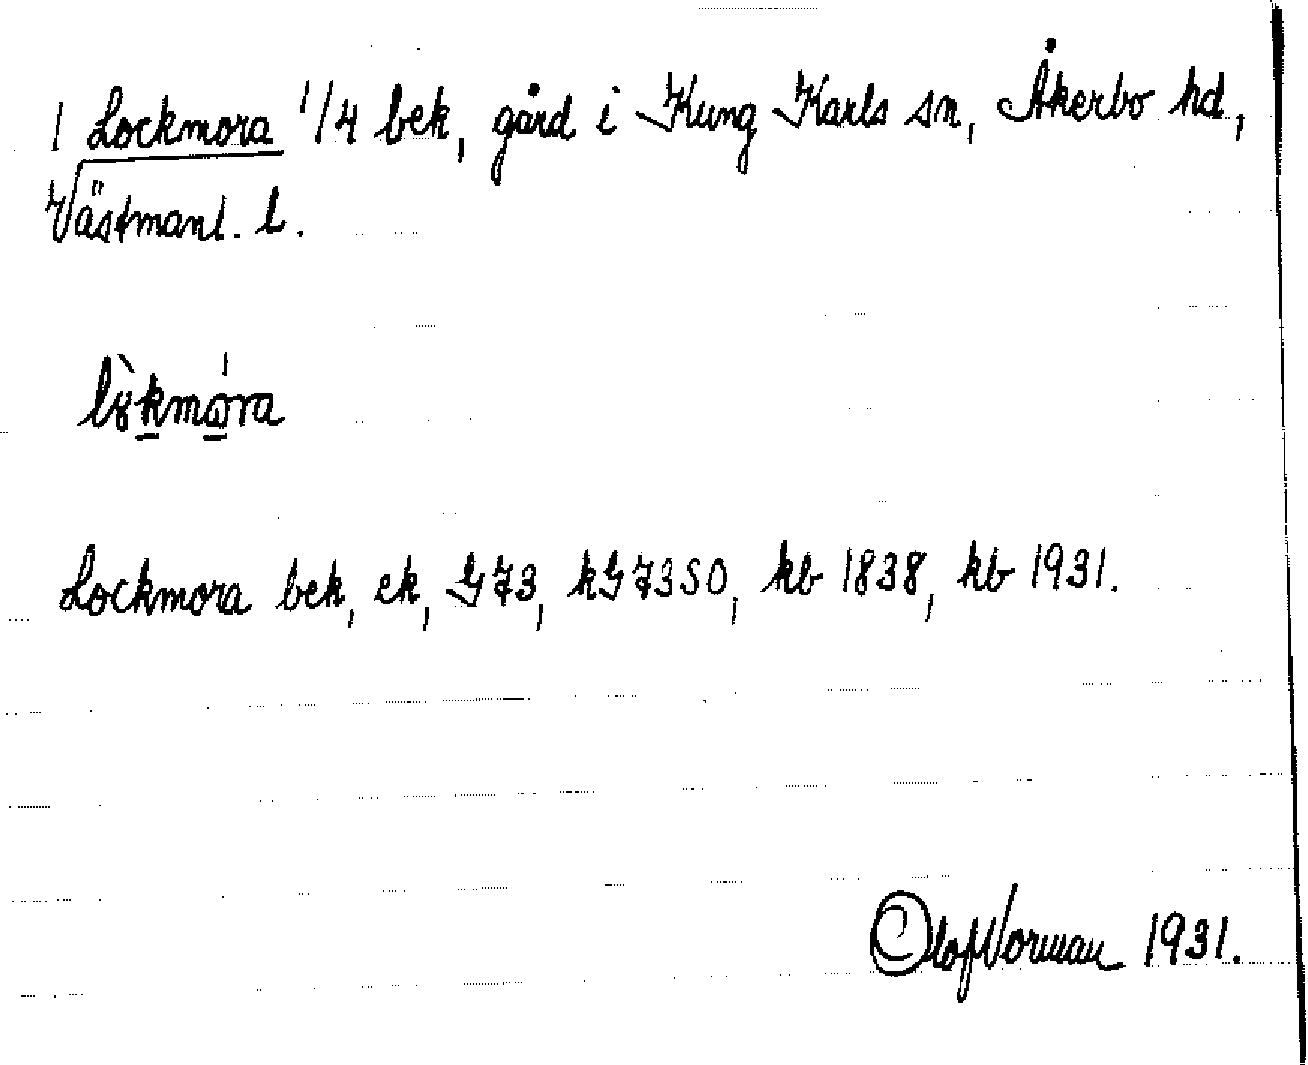 1 Lockmora 1/4 bek, gård i Kung Karls sn, Åkerbo hd,
Västmanl. l.
lökmora
Lockmora bek, ek, G73, kG73SO, kb 1838, kb 1931.
Olof Norman 1931.